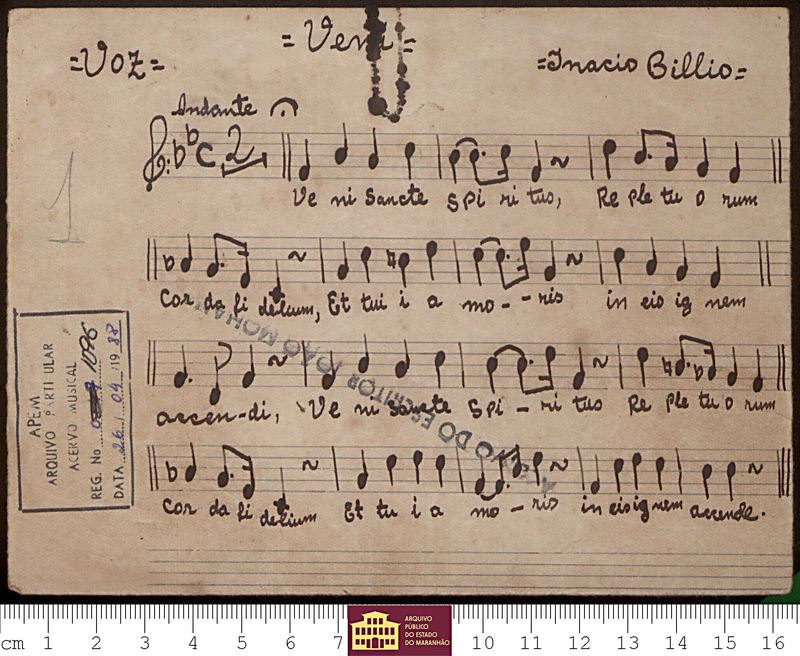 =Voz= =Veni= =Inacio Billio=
Andante
2
Ve ni Sancte Spi ri tus, Re ple tu o rum
Cor da fi delium, Et tui i a mo--ris in eis ig nem
accen-di, Ve ni Sancte Spi-ri tus Re ple tu o rum
Cor da fi delium Et tu i a mo-ris in eis ig nem accende.
1
APEM
ARQUIVO P RTI ULAR
ACERVO MUSICAL
REG. No 1096
DATA 26/04/1988
ESCRITOR JOÃO MOHANA
cm 1 2 3 4 5 6 7 10 11 12 13 14 15 16
ARQUIVO
PÚBLICO
DO ESTADO
DO MARANHÃO